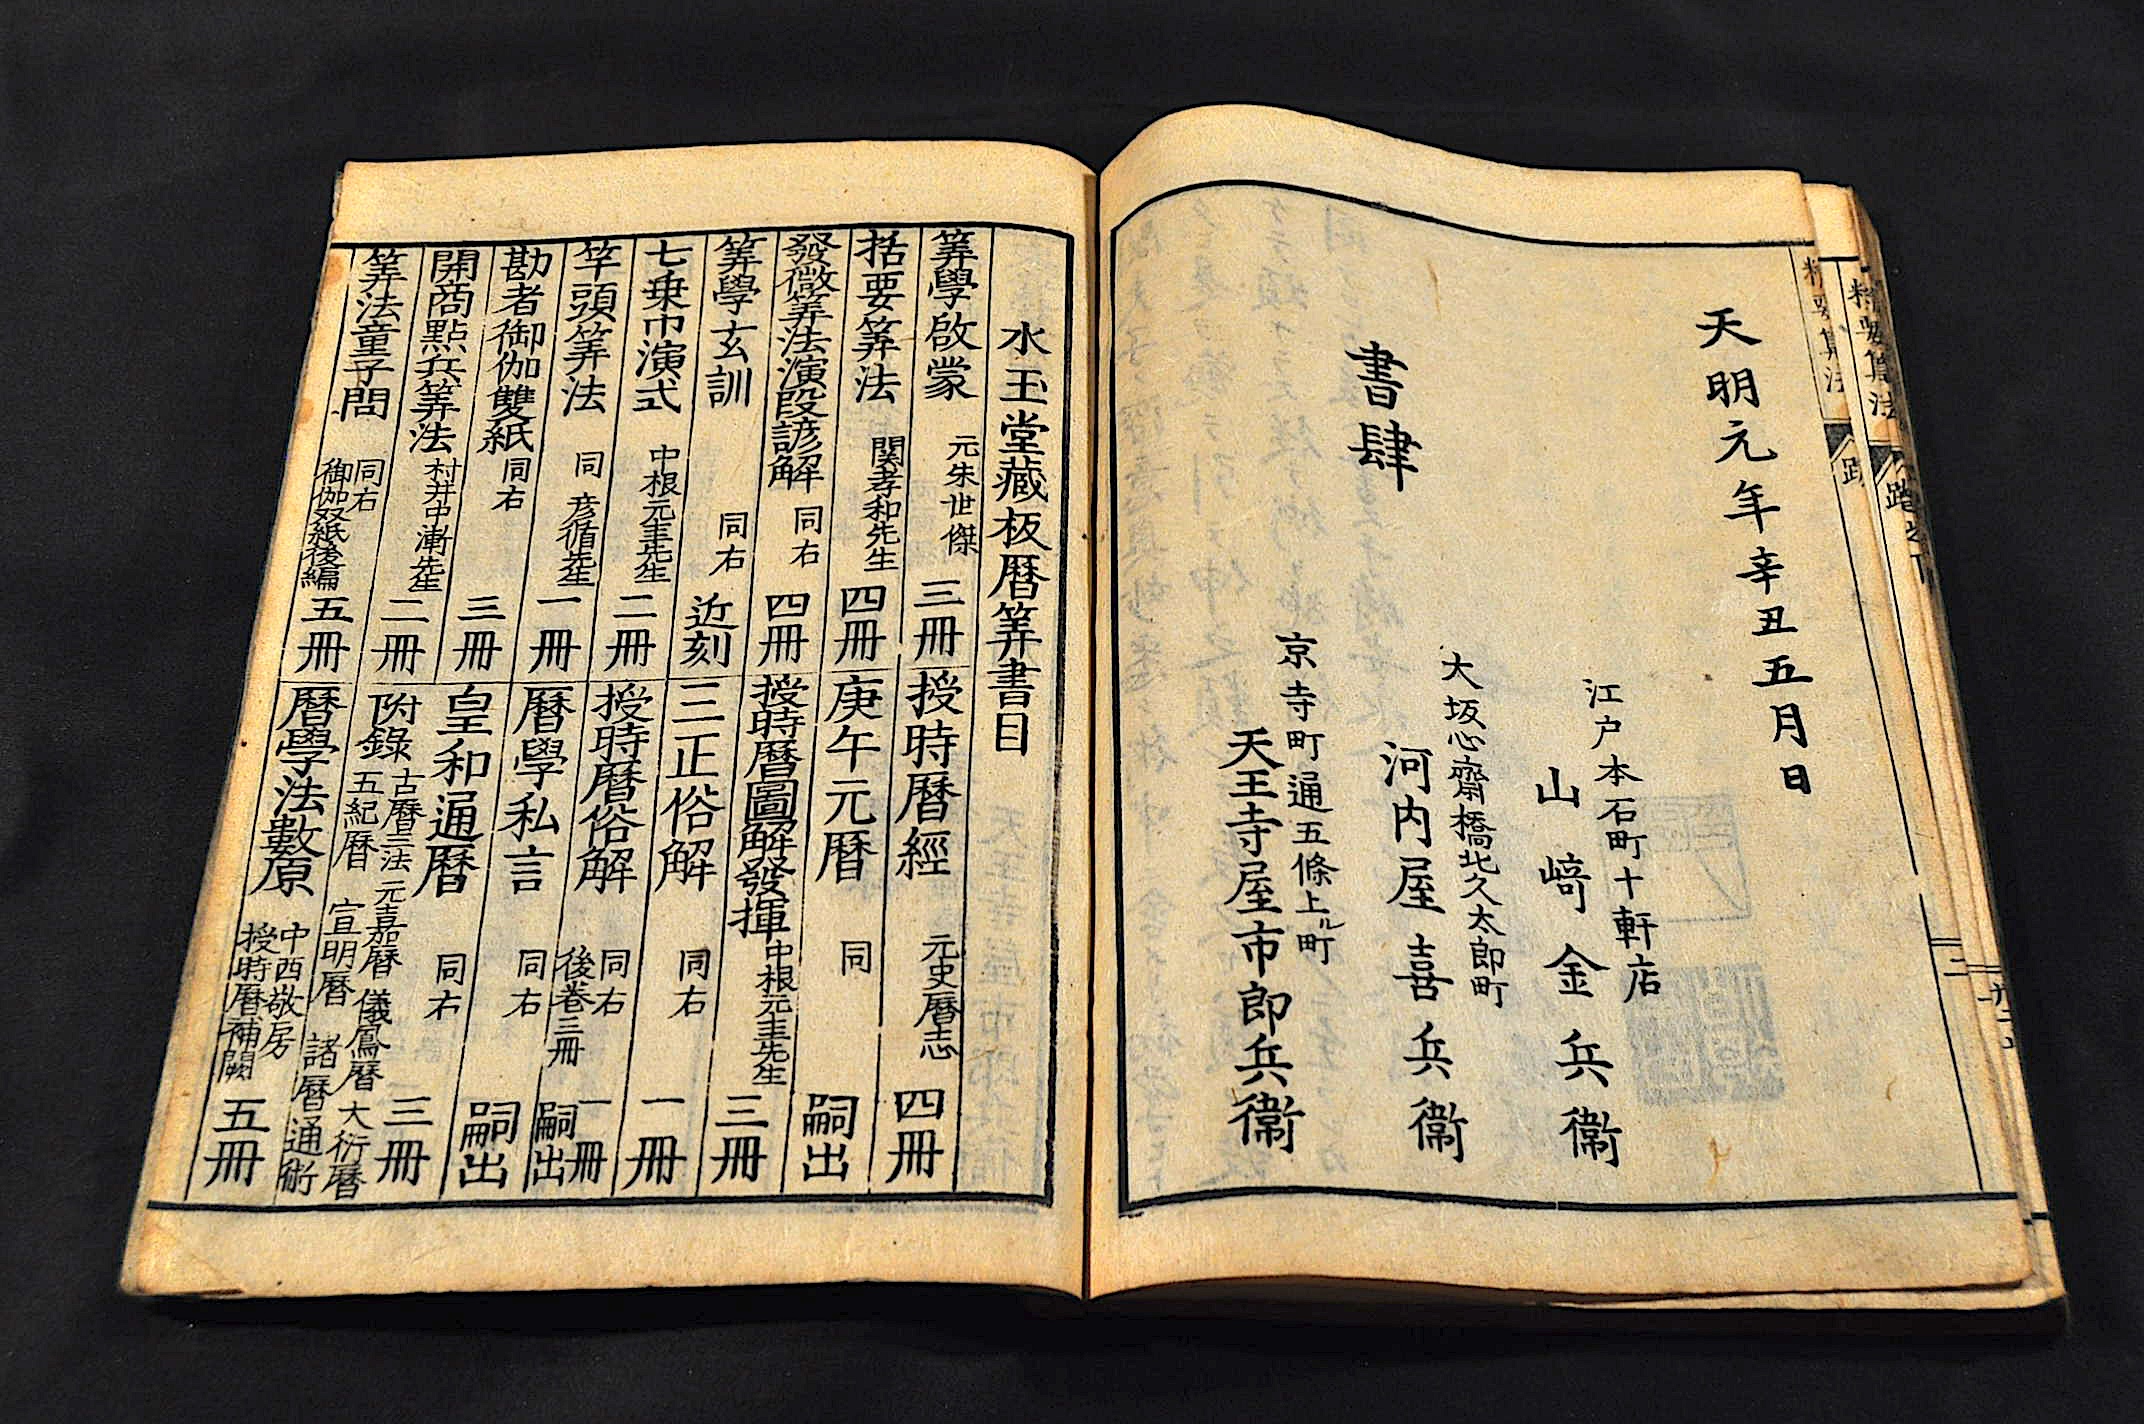 精要算法
跋
天明元年辛丑五月日
江戸本石町十軒店
山﨑金兵衞
大坂心齋橋北久太郎町
書肆
河内屋喜兵衞
京寺町通五條上ル町
天王寺屋市郎兵衞
水玉堂藏板暦筭書目
筭學啟蒙 元朱世傑 三冊
括要筭法 関孝和先生 四冊
發微筭法演段諺解 同右 四冊
筭學玄訓 同右 近刻
七乗巾演式 中根元圭先生 二冊
竿頭筭法 同 彦循先生 一冊
勘者御伽雙紙 同右 三冊
開商點兵筭法 村井中漸先生 二冊
筭法童子問 同右 御伽双紙後編 五冊
授時暦經 元史暦志 四冊
庚午元暦 同 嗣出
授時暦圖解發揮 中根元圭先生 三冊
三正俗解 同右 一冊
授時暦俗解 同右 後巻三冊 一冊 嗣出
暦學私言 同右 嗣出
皇和通暦 同右 三冊
附錄 古暦三法 元嘉暦 儀鳳暦 大衍暦
五紀暦 宣明暦 諸暦通術
暦學法數原 中西敬房 授時暦補闕 五冊